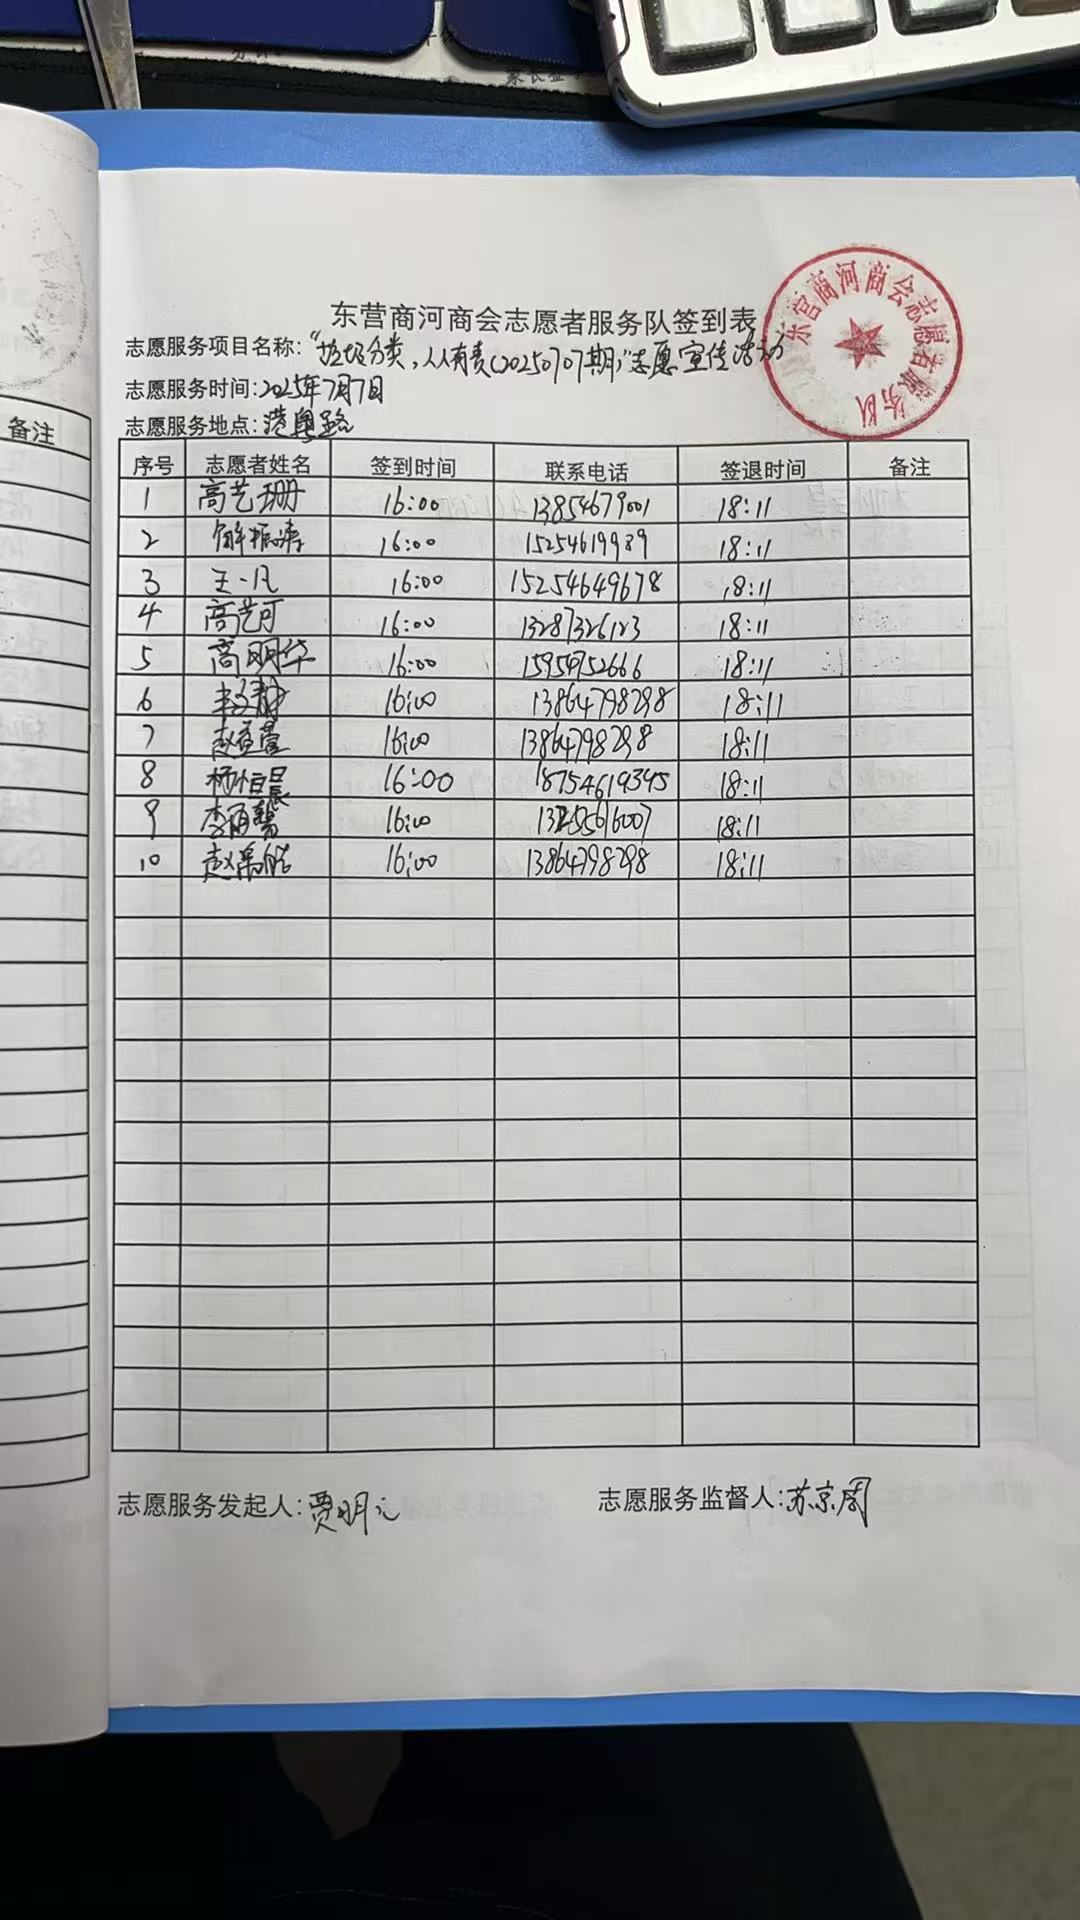 东营商河商会志愿者服务队签到表
东营商河商会志愿者服务队
志愿服务项目名称:“垃圾分类,人人有责(20250707期)”志愿宣传活动
志愿服务时间:2025年7月7日
志愿服务地点:港粤路
备注
序号 志愿者姓名 签到时间 联系电话 签退时间 备注
1 高艺珊 16:00 13854679001 18:11
2 解振涛 16:00 15254619989 18:11
3 王一凡 16:00 15254649678 18:11
4 高艺可 16:00 13287326123 18:11
5 高明华 16:00 18:11
6 16:00 13864798298 18:11
7 赵萱萱 16:00 13864798298 18:11
8 柳恒晨 16:00 18754619345 18:11
9 16:00 18:11
10 赵禹皓 16:00 13864798298 18:11
志愿服务发起人:贾明元 志愿服务监督人:苏京周